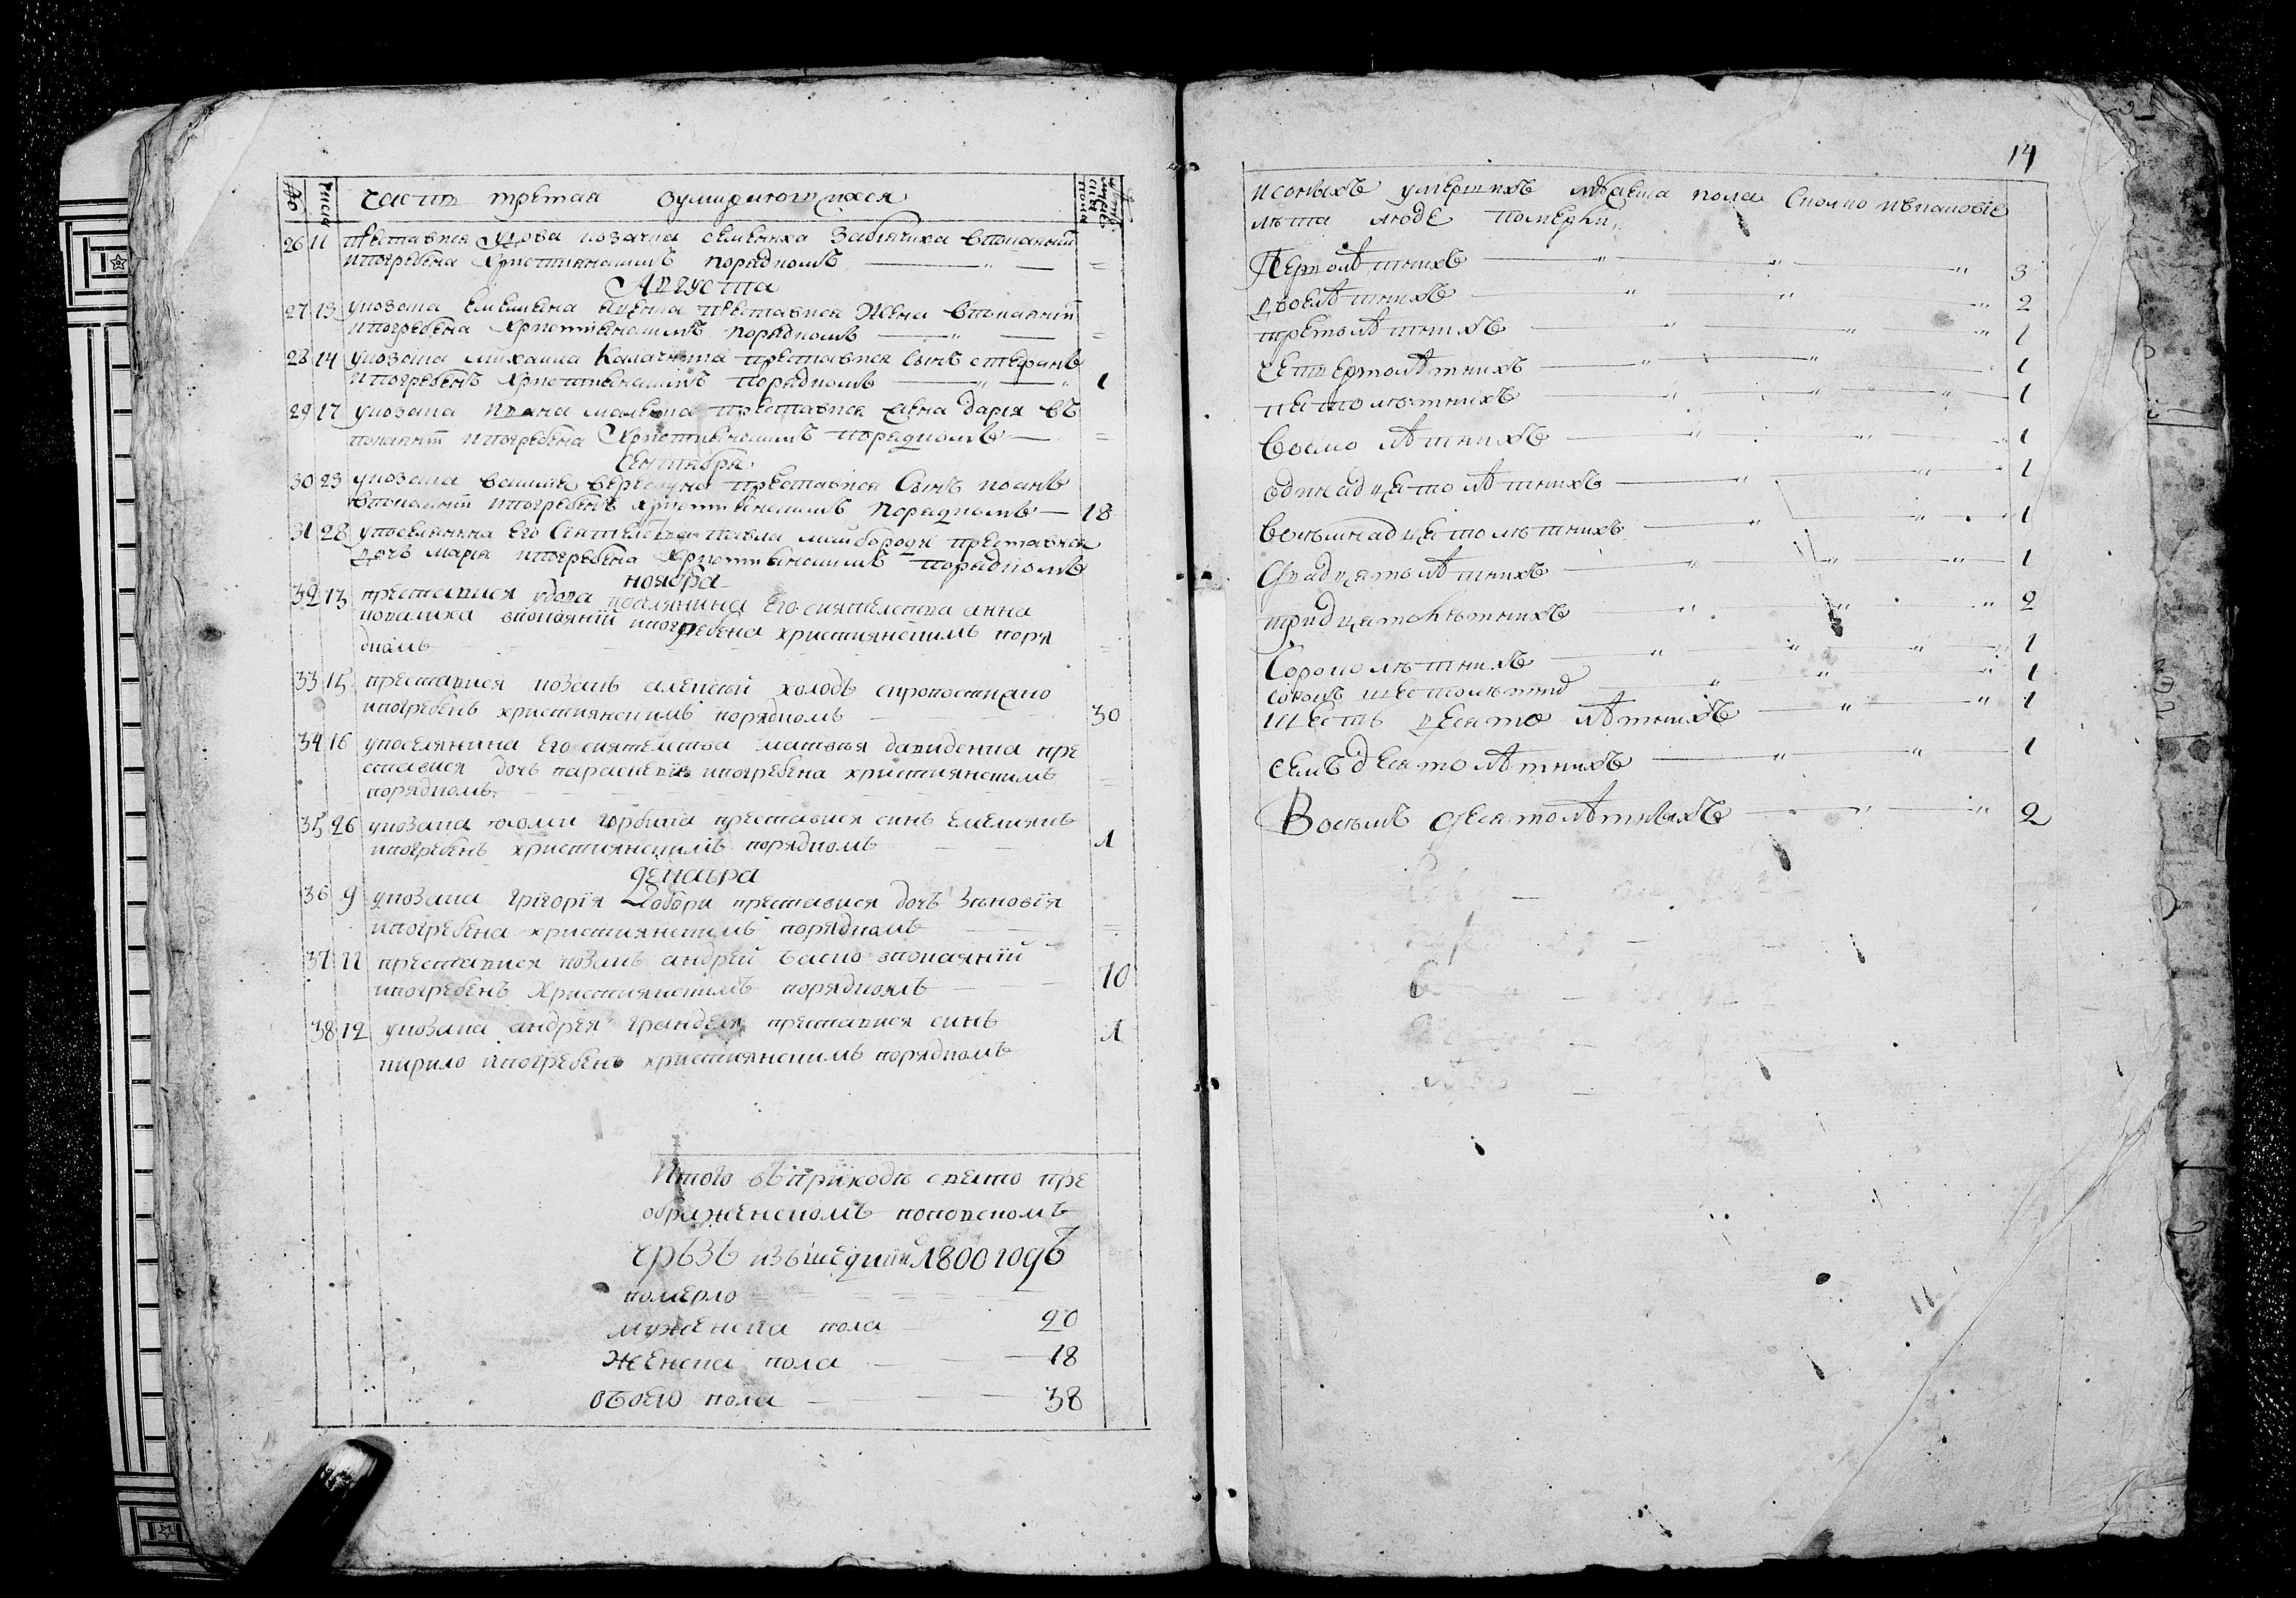 № числа часть третая оумираючихся
26 11 преставися удова козачка семениха Забіячиха в покаянии
и погребена християнскимъ порядкомъ
Августа
27 13 у козака Емелияна преставися жена в покаяний
и погребена християнскимъ порядкомъ
28 14 у козака михаила Калачника преставися сынъ стефанъ
и погребенъ християнскимъ порядкомъ 1
29 17 у козака преставися жена дария въ
покаянии и погребена християнскимъ порядкомъ
Сентабря
30 23 у козака василия преставися сынъ иоанъ
в покаянии и погребенъ християнскимъ порядкомъ 18
31 28 у поселянина Его Сиятелства павла майбороди преставися
дочъ мария и погребена християнскимъ порядкомъ
ноября
32 13 преставися вдова поселянина Его сиятелства анна
ковалиха в покаянїи и погребена християнскимъ поря
дкомъ
33 15 преставися козакъ алексий холодъ
и погребенъ християнскимъ порядкомъ 30
34 16 у поселянина Его сиятелства матвѣя давиденка пре
ставися дочъ параскевия и погребена християнскимъ
порядкомъ
35 26 у козака горбика преставися синъ Емелиянъ
и погребенъ християнскимъ порядкомъ 1
декабра
36 9 у козака григорїя Цобори преставися дочъ Зиновїя
и погребена християнскимъ порядкомъ
37 11 преставися козакъ андрей баско в покаянїй
и погребенъ християнскимъ порядкомъ 70
38 12 у козака андрея преставися синъ
кирило и погребенъ християнскимъ порядкомъ 1
Итого въ приходѣ свято пре
ображенскомъ поповскомъ
чрѣзъ изъшедший 1800 годъ
померло
мужеска пола 20
женска пола 18
обоего пола 38
14
и сонихъ умершихъ мужеска пола сколко и въ каковіе
лѣта люде померли
Перволѣтнихъ 3
двоелѣтнихъ 2
третолѣтнихъ 1
четвертолѣтнихъ 1
пятолѣтнихъ 1
восмолѣтнихъ 1
одинадцятолѣтнихъ 1
восѣмнадцятолѣтнихъ 1
двадцятолѣтнихъ 1
тридцятолѣтнихъ 2
сороколѣтнихъ 1
сорокъ шестолѣтнихъ 1
шестьдесятолѣтнихъ 1
семъдесятолѣтнихъ 1
Восѣмъдесятолѣтнихъ 2